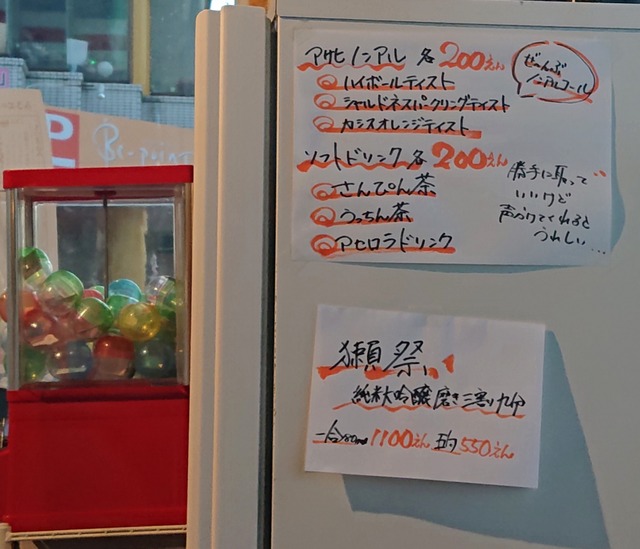 アサヒノンアル 各200えん
ぜーんぶ
ノンアルコール
ハイボールテイスト
シャルドネスパークリングテイスト
カシスオレンジテイスト
ソフトドリンク 各200えん
さんぴん茶
うっちん茶
アセロラドリンク
勝手に取って
いいけど
声かけてくれると
うれしい...
獺祭
純米大吟醸磨き三割九分
一合180ml 1100えん 5勺 550えん
P